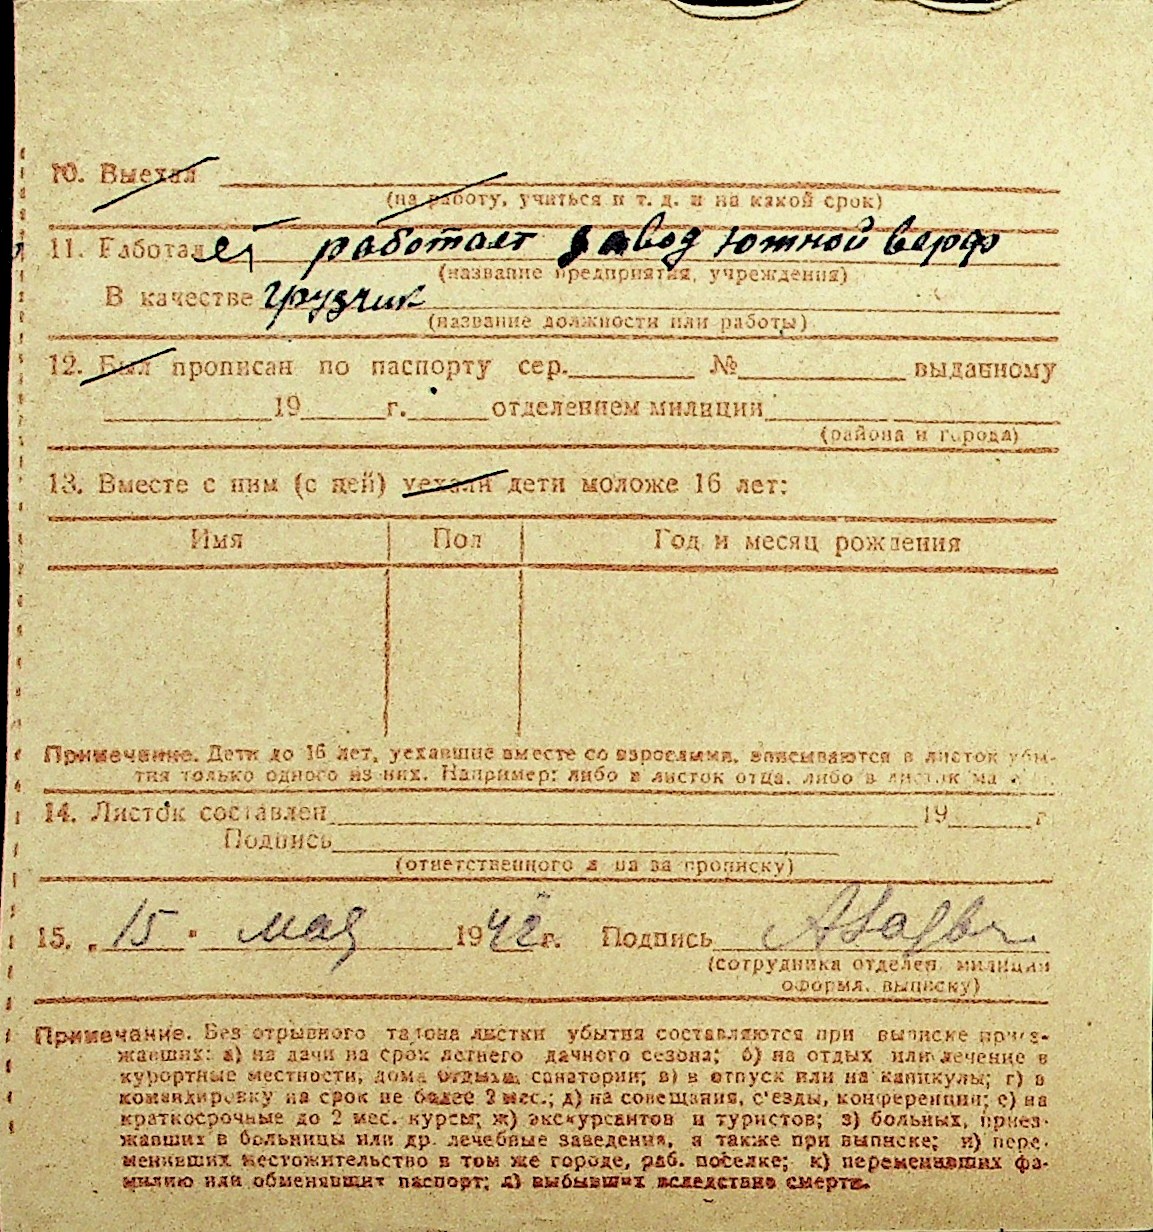 10. Выехал
(на работу, учиться и т. д. и на какой срок)
11. Работает работает завод южной верф
(название предприятия, учреждения)
В качестве грузчик
(название должности или работы)
12. Был прописан по паспорту сер. № выданному
19 г. отделением милиции
(района и города)
13. Вместе с ним (с ней) уехали дети моложе 16 лет:
Имя Пол Год и месяц рождения
Примечание. Дети до 16 лет, уехавшие вместе со взрослыми, вписываются в листок убы-
тия только одного из них. Например: либо в листок отца, либо в листок ма
14. Листок составлен 19 г.
Подпись
(ответственного лица за прописку)
15. „15" мая 1942 г. Подпись
(сотрудника отделен. милиции
оформл. выписку)
Примечание. Без отрывного талона листки убытия составляются при выписке приез-
жавших: а) на дачи на срок летнего дачного сезона; б) на отдых или лечение в
курортные местности, дома отдыха, санатории; в) в отпуск или на каникулы; г) в
командировку на срок не более 2 мес.; д) на совещания, с'езды, конференции; е) на
краткосрочные до 2 мес. курсы; ж) экскурсантов и туристов; з) больных, приез-
жавших в больницы или др. лечебные заведения, а также при выписке; и) пере-
менивших местожительство в том же городе, раб. поселке; к) переменивших фа-
милию или обменявших паспорт; л) выбывших вследствие смерти.